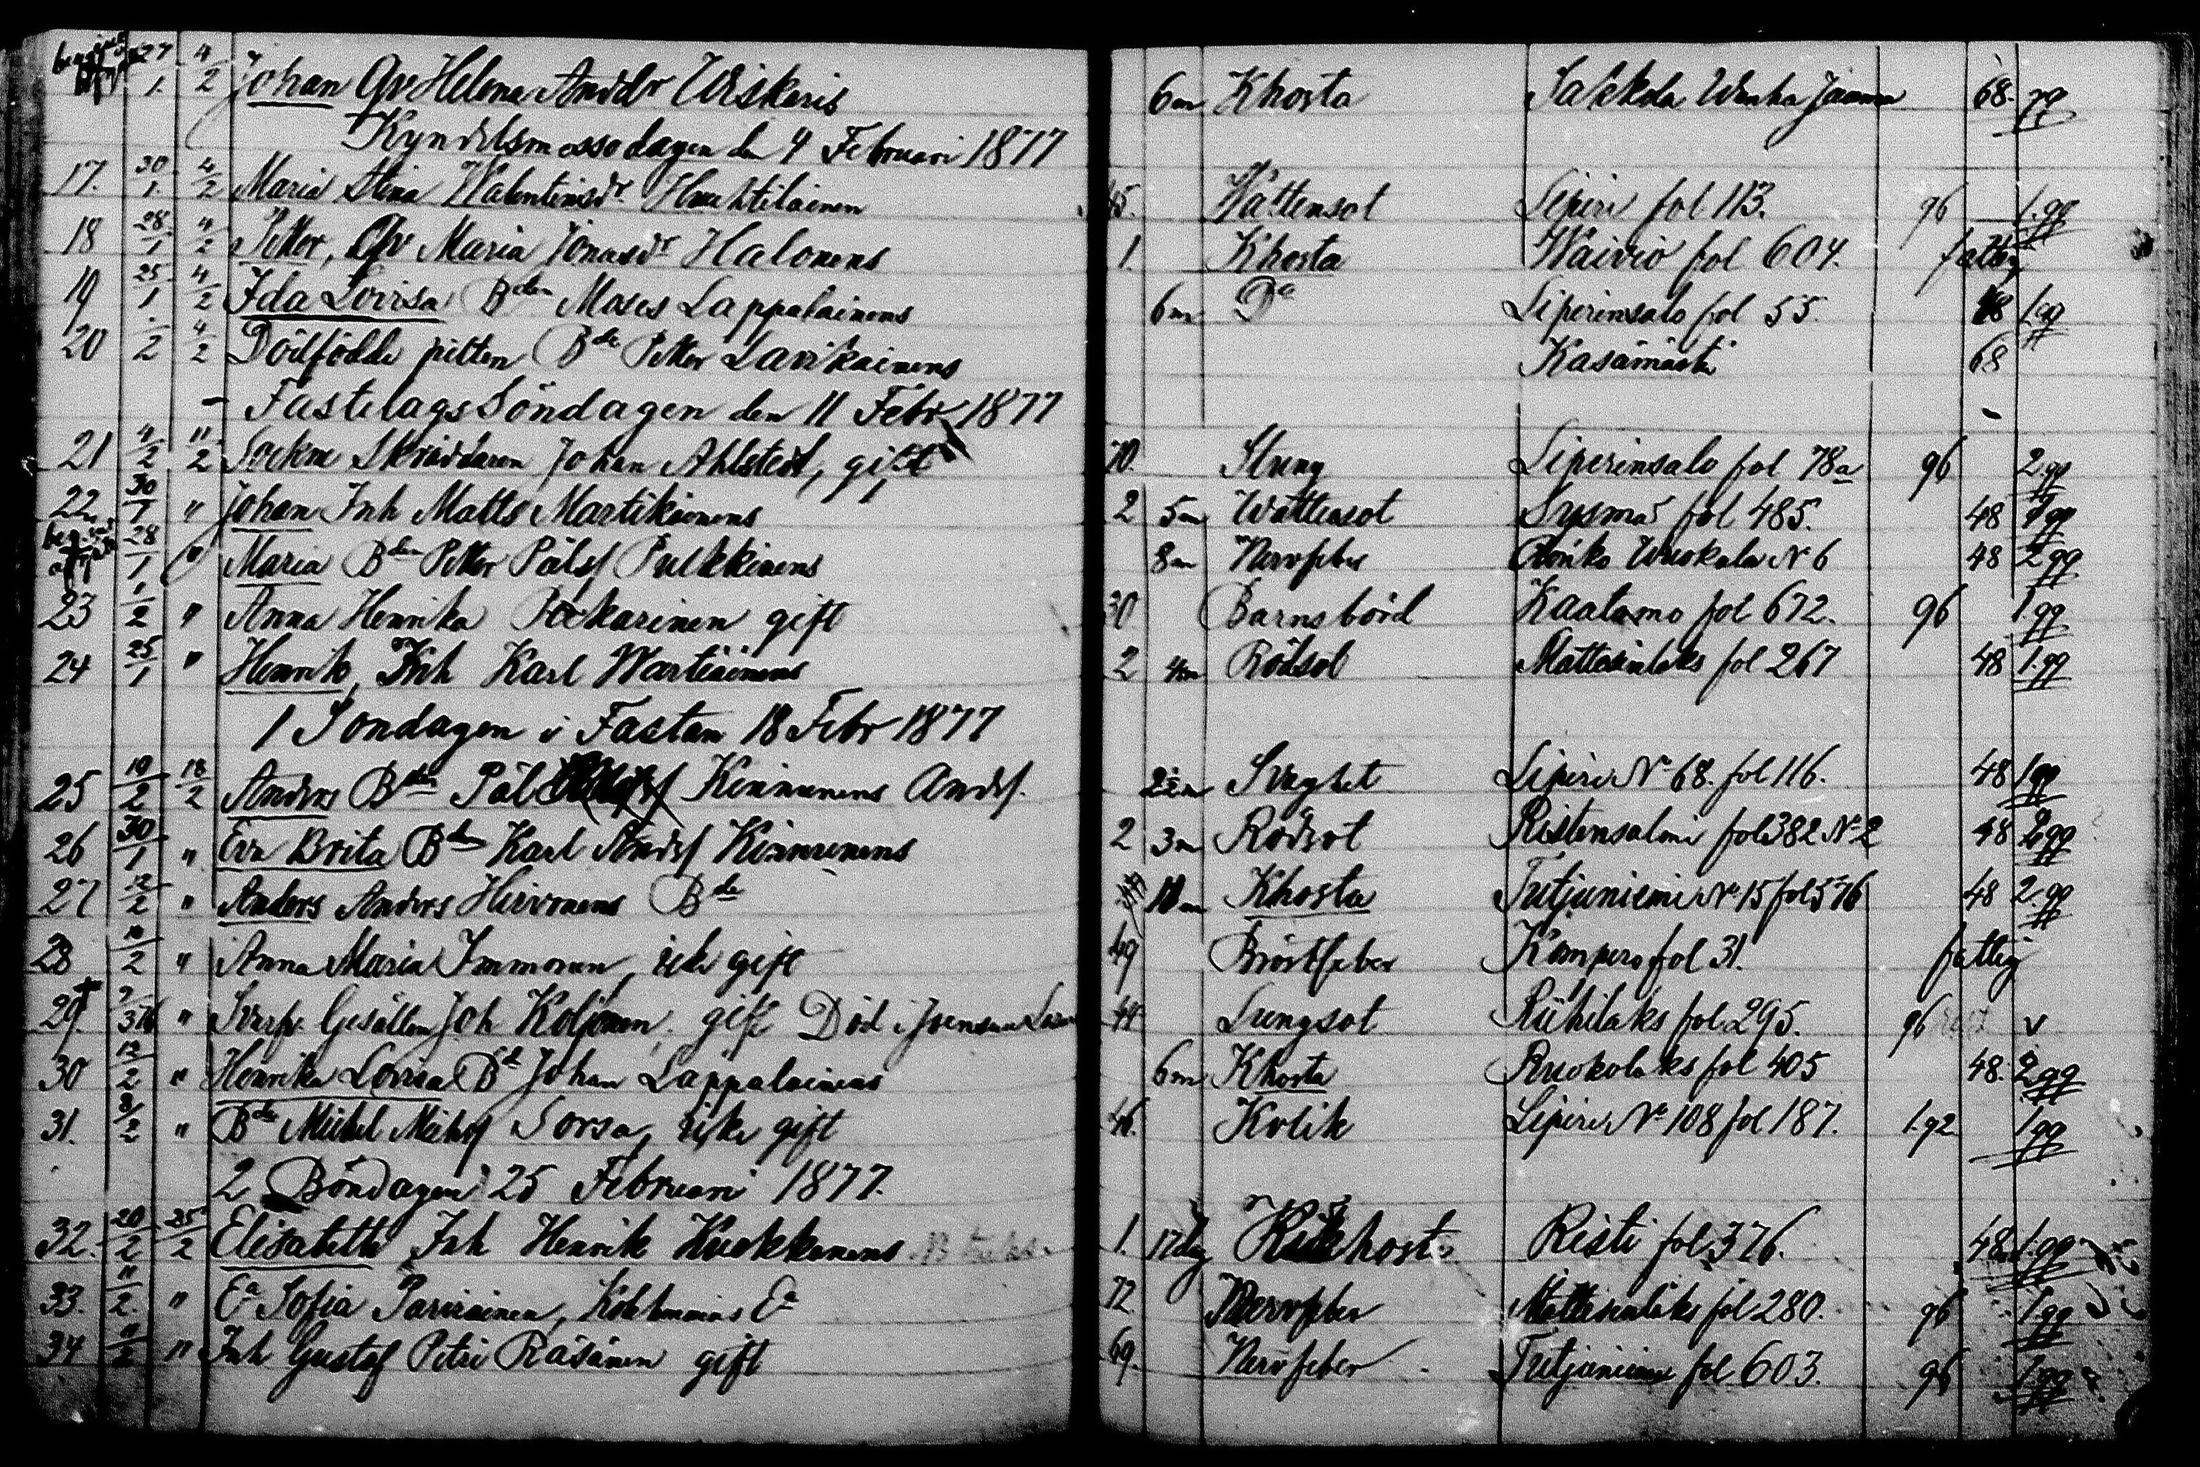 27/1. 4/2 Johan Qv Helena Andrsdr Wiskaris 6m Khosta Sakkola Wanha Jaama 68. gg
Kyndelsmossodagen den 4 Februari 1877
17. 30/1. 4/2 Maria Stina Walentinsdr Huuhtilainen 45. Wattensot Liperi fol 113. 96 1.gg
18 28/1 4/2 Petter, Qv Maria Jonasdr Halonens 1. Khosta Waivio fol 604. fattig
19 25/1 4/2 Ida Lovisa Bden Moses Lappalainens 6m Do Liperinsalo fol 55. 48 1gg
20 /2 4/2 Dödfödde pilten Bde Petter Lavikainens Kasämäcki 68
- Fastelags Söndagen den 11 Febr 1877
21 4/2 11/2 Sockne Skräddaren Johan Ahlstedt, gift 70. Slung Liperinsalo fol 78a 96 2.gg
22. 30/1 " Johan Inh Matts Martikainens 2 5m Wattensot Sysmä fol 485. 48 gg
28/1 " Maria Bden Petter Pålsf Pulkkinens 8m Nervfeber Wuokala N 6 48 2gg
23 1/2 " Anna Henrika Pockarinen gift 30 Barnsbörd Kaatamo fol 672. 96 1.gg
24 25/1 " Henrik, Inh Karl Wartiainens 2 4m Rödsot Mattisenlaks fol 267 48 1.gg
1 Söndagen i Fastan 18 Febr 1877
25 10/2 18/2 Anders Bden Pål Kinnunens Andsf. 2½m Svaghet Liperi No 68. fol 116. 48 1gg
26 30/1 " Eva Brita Bden Karl Andsf Kinnunens 2 3m Rödsot Ristensalmi fol 382 No 2 48 2gg
27 12/2 " Anders Anders Hirvonens Bde 11m Khosta Tutjuniemi No 15 fol 576 48 2.gg
28 10/2 " Anna Maria Immonen, icke gift 49 Bröstfeber Kompero fol 31. fattig
29. 7/376 " Svarfv. Gesällen Joh Koljonen, gift Död i Joensuu 44 Lungsot Riihilaks fol 295. 96 v
30 12/2 " Henrika Lovisa Bd Johan Lappalainens 6m Khosta Ruokolaks fol 405 48. 2gg
31. 8/2 " Bde Mickel Mickelsf Sorsa, icke gift 46. Kolik Liperi No 108 fol 187. 1.92 1gg
2 Böndagen 25 Februari 1877.
32. 20/2 25/2 Elisabeth Inh Henrik Kuokkanens 1. 17dg Kikhosta Risti fol 376. 48. 1.gg
33. 11/2. " Ea Sofia Parviainen, Kolehmains Ea 72 Nervfeber Mattisenlaks fol 280. 96 1gg
34 11/2 " Inh Gustaf Petri Räsänen gift 69. Nervfeber Tutjuniemi fol 603. 96 1gg